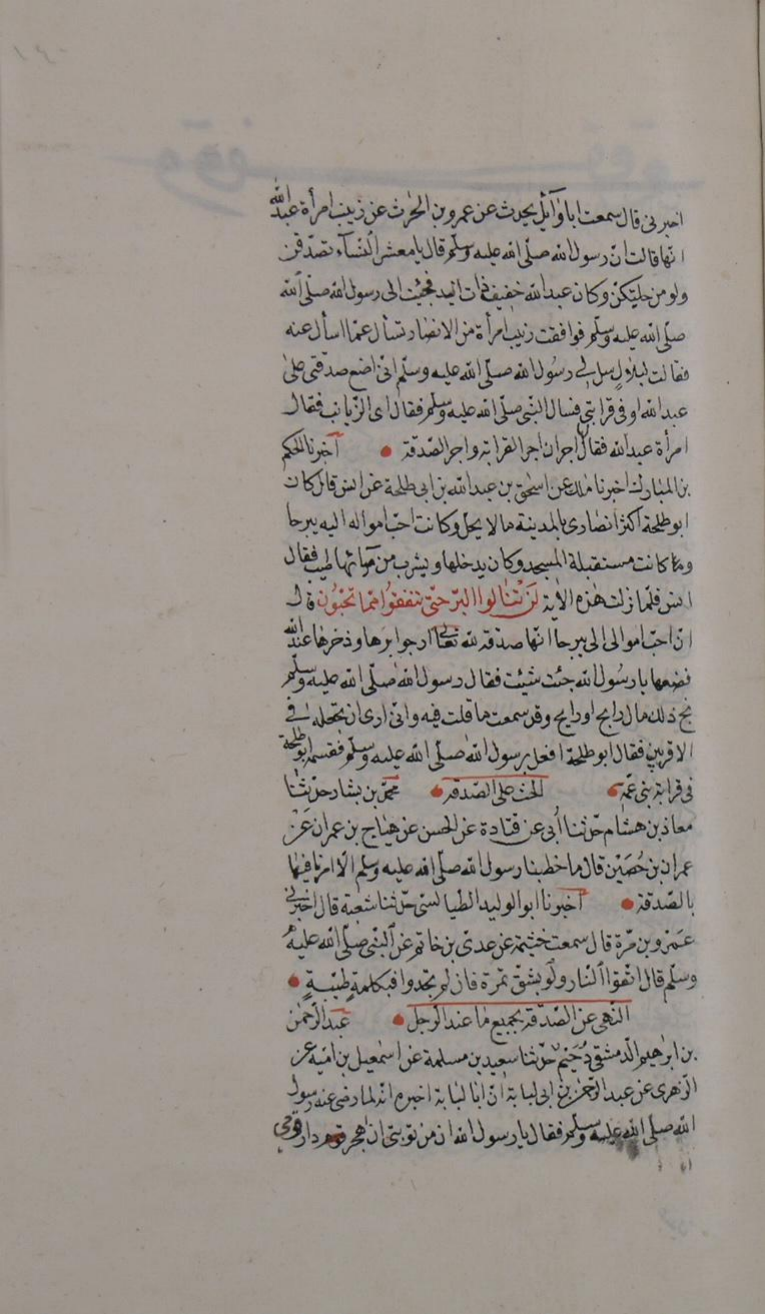 اخبرنى قال سمعت ابا وآئل يحدث عن عمرو بن الحٰرث عن زينب امرأة عبدالله
انها قالت ان رسول الله صلّى الله عليه وسلّم قال يا معشر النّسآء تصدّقن
ولو من حليّكنّ وكان عبدالله خفيف ذات اليد فجئت الى رسول الله صلّى الله
صلّى الله عليه وسلّم فوافقت زينب امرأة من الانصار تسأل عمّا اسأل عنه
فقالت لبلال سل لى رسُول الله صلّى الله عليه وسلّم انى اضع صدقتى على
عبدالله او فى قرابتى فسال النبى صلّى الله عليه وسلّم فقال اى الزّيانب فقال
امرأة عبدالله فقال اجران اجر القرابة واجر الصّدقة اخبرنا الحكم
بن المبارك اخبرنا مٰلك عن اسحٰق بن عبدالله بن ابى طلحة عن انس قال كان
ابو طلحة اكثر انصارى بالمدينة مالا يحل وكانت احبّ امواله اليه بيرحا
وما كانت مستقبلة المسجد وكان يدخلها ويشرب من مآئها طيب فقال
انس فلما نزلت هٰذه الاٰية لَنْ تَنَالوُا البرّ حتّى تنفقُوُا ممّا تحبّوُن قال
انّ احبّ اموالى الى بيرحا انّها صدقة لله تعالى ارجو ابرّها وذخرها عندالله
فضعها يا رسُول الله حيث شيئت فقال رسول الله صلّى الله عليه وسلّم
بخ ذلك مال رابح او رايح وقد سمعت ما قلت فيه وانى ارى ان تجعله فى
الاقربين فقال ابو طلحة افعل يرسول الله صلّى الله عليه وسلّم فقسمه ابو طلحة
فى قرابة بنى عمّه الحث على الصّدقة محمّد بن بشار حدّثنا
معاذ بن هشام حدّثنا أبى عن قتادة عن الحسن عن هياج بن عمران عَنْ
عمران بن حُصَيْن قال ما خطبنا رسول الله صلّى الله عليه وسلم الّا امرنا فيها
بالصّدقة اخبرنا ابو الوليد الطيالسى حدّثنا شعبة قال اخبرنى
عَمْرو بن مرة قال سمعت خثيمة عن عدى بن حاتم عن النّبى صلّى الله عليهُ
وسلّم قال اتّقوا النّار ولو بشق تمرة فان لم تجدوا فبكلمةٍ طيّبةٍ
النّهى عن الصّدقة بجميع ما عند الرّجل عبد الرّحمٰن
بن ابرٰهيم الدمشقى دُحَيْم حدّثنا سعيد بن مسلمة عن اسمٰعيل بن اميّة عن
الزهرى عن عبد الرّحمٰن بن ابى لبابة انّ ابا لبابة اخبره انّه لما رضى عنه رسول
الله صلّى الله عليه وسلّم فقال يا رسول الله ان من توبتى ان اهجر دار قومى